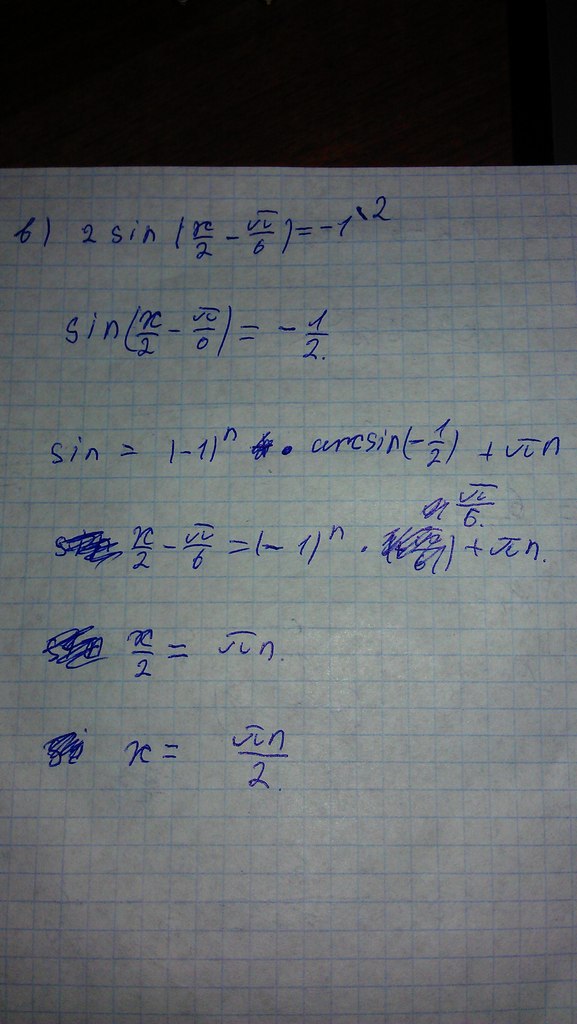 в) 2 sin (x/2 - π/6) = -1 \ 2
sin(x/2 - π/6) = - 1/2.
sin = (-1)ⁿ · arcsin(-1/2) + πn
π/6.
x/2 - π/6 = (-1)ⁿ · + πn.
x/2 = πn.
x = πn/2.